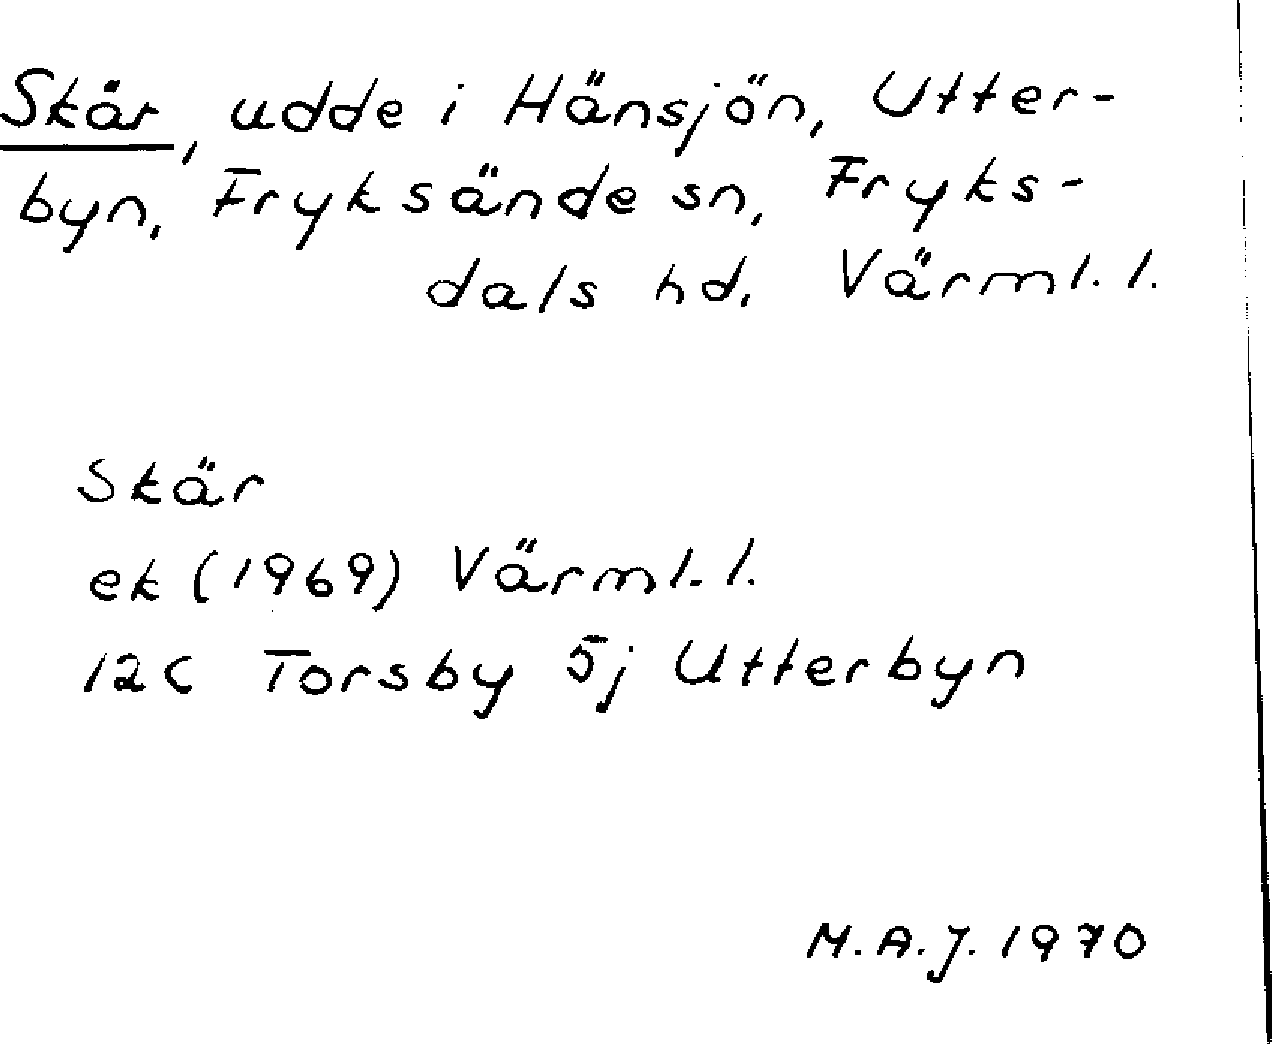 Skär, udde i Hänsjön, Utter-
byn, Fryksände sn, Fryks-
dals hd, Värml. l.
Skär
ek (1969) Värml. l.
12C Torsby 5j Utterbyn
M.A.J. 1970